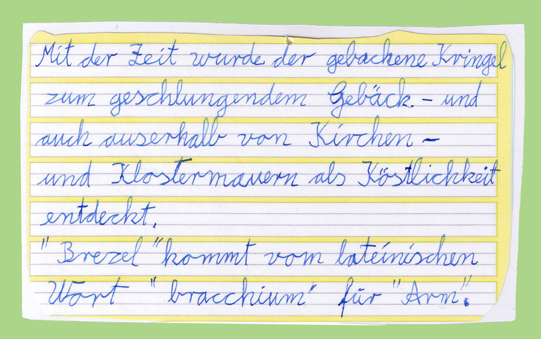 Mit der Zeit wurde der gebackene Kringel
zum geschlungendem Gebäck. - und
auch auserhalb von Kirchen -
und Klostermauern als Köstlichkeit
entdeckt.
"Brezel" kommt vom lateinischen
Wort "bracchium" für "Arm".